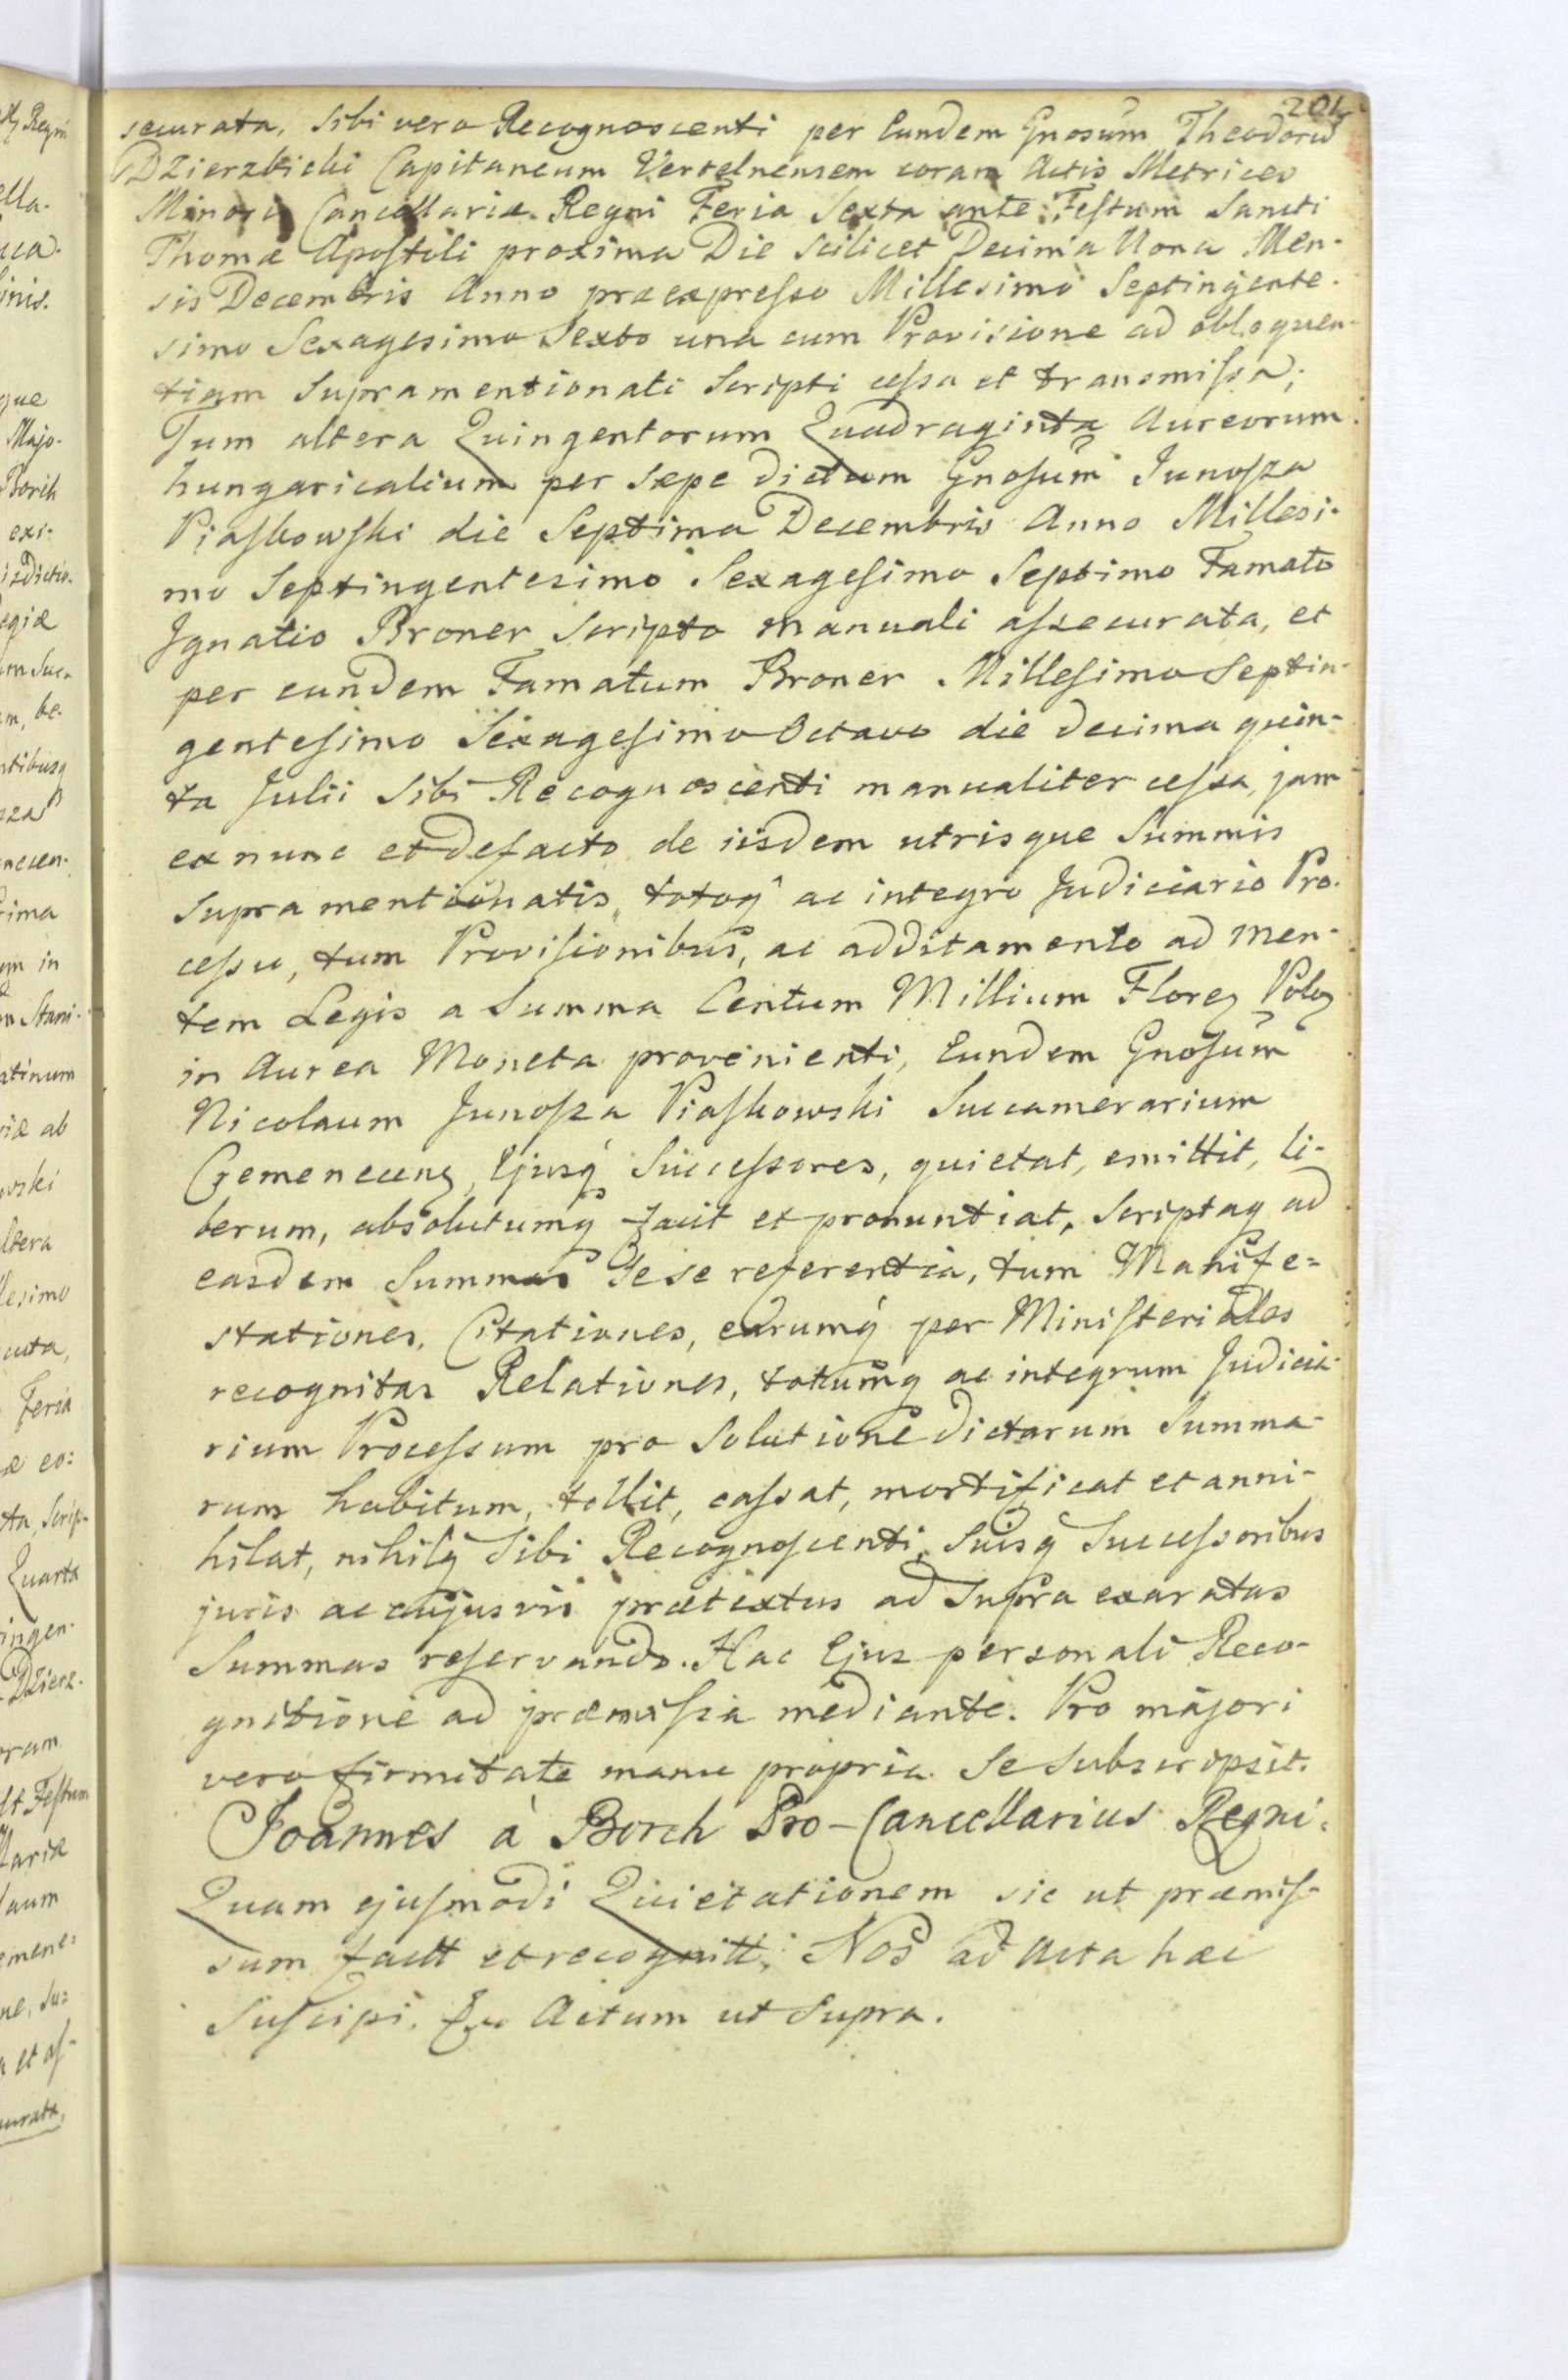 201
securata, Sibi vero Recognoscenti per Eundem Gnosum Theodorū
Dzierzbicki Capitaneum Vertelnensem coram Actis Metrices
Minoris Cancellariæ Regni Feria Sexta ante Festum Sancti
Thomæ Apostoli proxima Die scilicet Decima Nona Men-
sis Decembris Anno præexpresso Millesimo Septingente-
simo Sexagesimo Sexto una cum Provisione ad obloquen-
tiam Supramentionati Scripti cessa et transmissa;
Tum altera Quingentorum Quadraginta Aureorum
hungaricalium per sæpe dictum Gnosum Junosza
Piaskowski die Septima Decembris Anno Millesi-
mo Septingentesimo Sexagesimo Septimo Famato
Ignatio Broner Scripto manuali assecurata, et
per eundem Famatum Broner Millesimo Septin-
gentesimo Sexagesimo Octavo die decima quin-
ta Julii Sibi Recognoscenti manualiter cessa, jam
ex nunc et defacto de iisdem utrisque Summis
Supra mentionatis, totoq ac integro Judiciario Pro-
cessu, tum Provisionibus, ac additamento ad men-
tem Legis a Summa Centum Millium Floreg Polog
in Aurea Moneta provenienti, Eundem Gnosum
Nicolaum Junosza Piaskowski Succamerarium
Cremenecens, Ejusq Successores, quietat, emittit, li-
berum, absolutumq facit et pronuntiat, Scriptaq ad
easdem Summas Sese referentia, tum Manife=
stationes, Citationes, earumq per Ministeriales
recognitas Relationes, totumq ac integrum Judicia-
rium Processum pro Solutione dictarum Summa-
rum habitum, tollit, cassat, mortificat et anni-
hilat, nihilq Sibi Recognoscenti, Suisq Successoribus
juris ac cujusvis prætextus ad Supra exaratas
Summas reservando. Hac Ejus personali Reco-
gnitione ad præmissa mediante. Pro majori
vero firmitate manu propria Se Subscripsit.
Joannes à Borch Pro-Cancellarius Regni.
Quam ejusmodi Quietationem sic ut præmis-
sum factt et recognitt, Nos ad Acta hæc
Suscipi. Actum ut Supra.